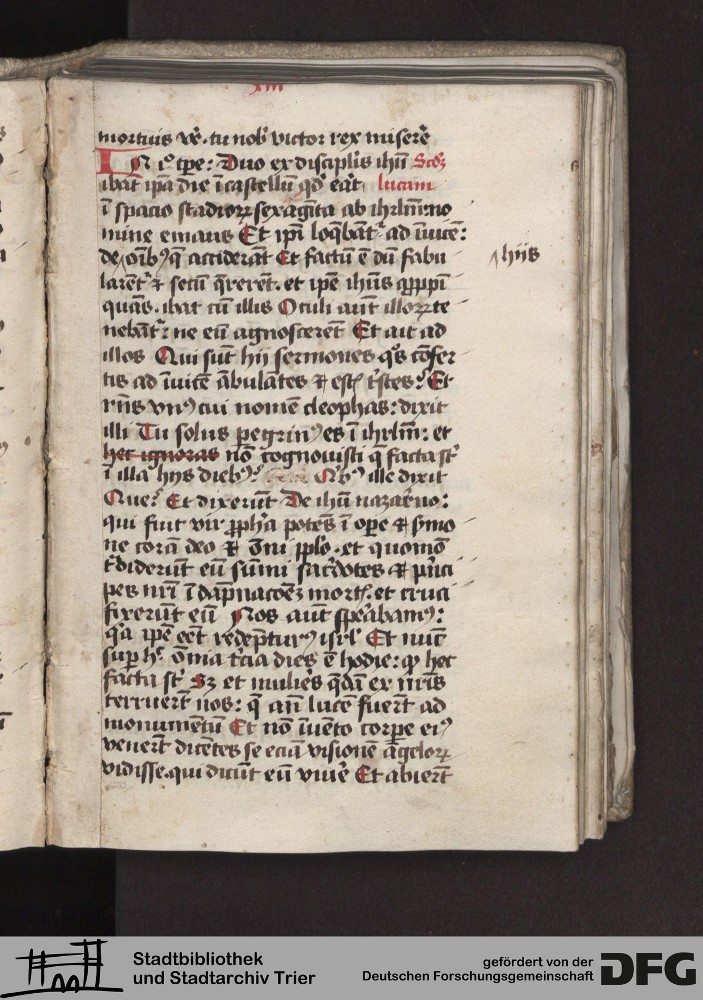 xiii
mortuis ve᷑. tu nob᷑ victor rex misere᷑
IN i° tp̄e: Duo ex discipl̄is ihū Scd᷑ꝫ
ibāt ip̄a die ī castellū qd᷑ eāt lucam
ī spacio stadioꝝ sexagīta ab ihrl̄m: no
mine emaus Et ip̄i loq̄bāt᷑ ad īuicē:
de oīb⁹ q̄ acciderāt Et factū ē dū fabu
hiis
larēt᷑ ⁊ secū q̄rerēt. et ip̄e ihūs ap̄ꝓpī
quās. ibat cū illis Oculi aūt illoꝝ te
nebāt᷑: ne eū agnoscerēt Et ait ad
illos Qui sūt hij sermones q°s cōfer
tis ad īuicē ābulātes ⁊ est᷑ tˢstes: Et
rn̄s vn⁹ cui nomē cleophas: dixit
illi Tu solus pegrin⁹ es ī ihrl̄m: et
hec ignoras nō cognouisti q̄ facta st᷑
ī illa hijs dieb⁹: Qb⁹ ille dixit
Que: Et dixerūt De ihū nazar̄no:
qui fuit vir ꝓph̄a potēs ī op̄e ⁊ s̄mo
ne corā deo ⁊ ōni pp̄lo. et quomō
t᷑diderūt eū sūmi sac᷑dotes ⁊ p᷑nci
pes nr̄i ī dāpnacōeꝫ mort᷑. et cruci
fixerūt eū Nos aūt sp̄abam⁹:
q᷑a ip̄e eēt redēptur⁹ isrl̄ Et nūc
sup̄ hᶜ ōnia t᷑cia dies ē hodie: qꝫ hec
facta st᷑ Sꝫ et mulie᷑s q̄dā ex nr̄is
terruer̄t nos: q̄ an̄ lucē fuer̄t ad
monumētū Et nō īuēto corp̄e ei⁹
vener̄t dicētes se eciā visionē āgeloꝝ
vidisse. qui dicūt eū viue᷑ Et abier̄t
Stadtbibliothek
und Stadtarchiv Trier
gefördert von der
Deutschen Forschungsgemeinschaft
DFG